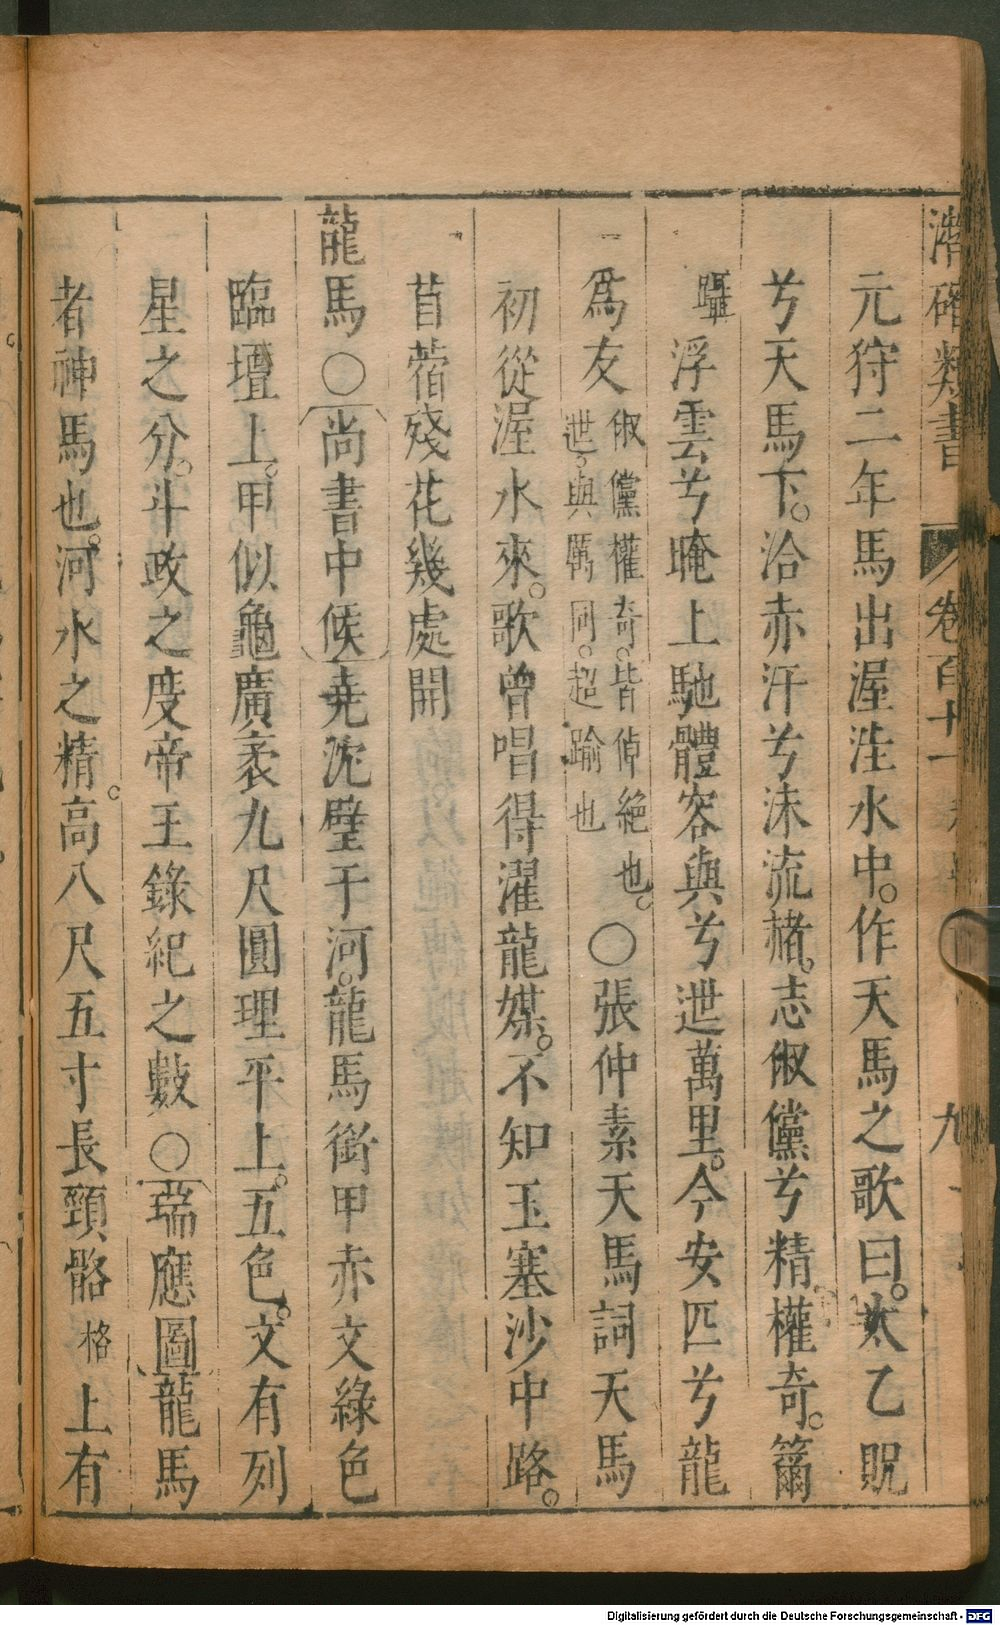 潛確類書 卷百十一 九
元狩二年馬出渥洼水中。作天馬之歌曰。太乙貺
兮天馬下。沾赤汗兮沬流赭。志俶儻兮精權奇。籋
躡 浮雲兮晻上馳體容與兮迣萬里。今安匹兮龍
為友 俶儻權奇。皆倬絕也。迣。與厲同。超踰也 ○張仲素天馬詞天馬
初從渥水來。歌曾唱得濯龍媒。不知玉塞沙中路。
苜蓿殘花幾處開
龍馬○尚書中候堯沈璧于河。龍馬銜甲赤文綠色
臨壇上。甲似龜廣袤九尺圓理平上。五色。文有列
星之分。斗政之度帝王錄紀之數○瑞應圖龍馬
者神馬也。河水之精。高八尺五寸長頸骼 格 上有
Digitalisierung gefördert durch die Deutsche Forschungsgemeinschaft - DFG